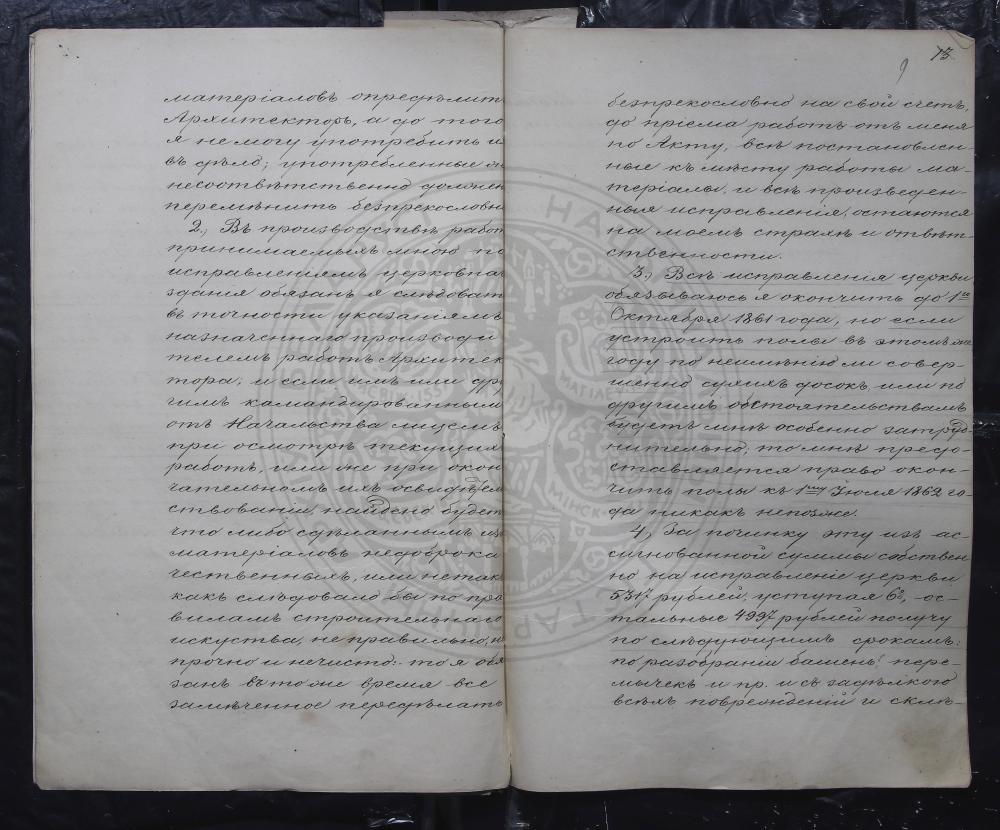 матеріаловъ опредѣлит
Архитекторъ, а до того
я не могу употребить и
въ дѣло; употребленные
несоотвѣтственно должен
перемѣнить безпрекословн
2., Въ производствѣ работ
принимаемыхъ мною по
исправленіямъ церковна
зданія обязанъ я слѣдоват
въ точности указаніямъ
назначеннаго производи
телемъ работъ Архитек
тора; и если имъ или дру
гимъ командированнымъ
отъ Начальства лицемъ
при осмотрѣ текущихъ
работъ, или же при окон
чательномъ ихъ освидѣтел
ствованіи, найдено будетъ
что либо сдѣланнымъ изъ
матеріаловъ недоброка
чественныхъ, или не так
какъ слѣдовало бы по пра
виламъ строительнаго
искуства, не правильно, н
прочно и нечисто: то я обя
занъ въ тоже время все
замѣченное передѣлать
9 13
безпрекословно на свой счетъ,
до пріема работъ отъ меня
по Акту, всѣ постановлен-
ные къ мѣсту работы ма-
теріалы, и всѣ произведен-
ныя исправленія, остаются
на моемъ страхѣ и отвѣт-
ственности.
3., Всѣ исправленія церкви
обязываюсь я окончить до 1го
Октября 1861 года, но если
устроить полы въ этомъ же
году по неимѣнію ли совер-
шенно сухихъ досокъ, или по
другимъ обстоятельствамъ
будетъ мнѣ особенно затруд-
нительно, то мнѣ предо-
ставляется право окон-
чить полы къ 1му Іюля 1862 го-
да никакъ непозже.
4., За починку эту изъ ас-
сигнованной суммы собствен
но на исправленіе церкви
5317 рублей, уступая 6%, -ос-
тальные 4997 рублей получу
по слѣдующимъ срокамъ:
по разобраніи башень, пере-
мычекъ и пр. и съ задѣлкою
всѣхъ поврежденій и склѣ-